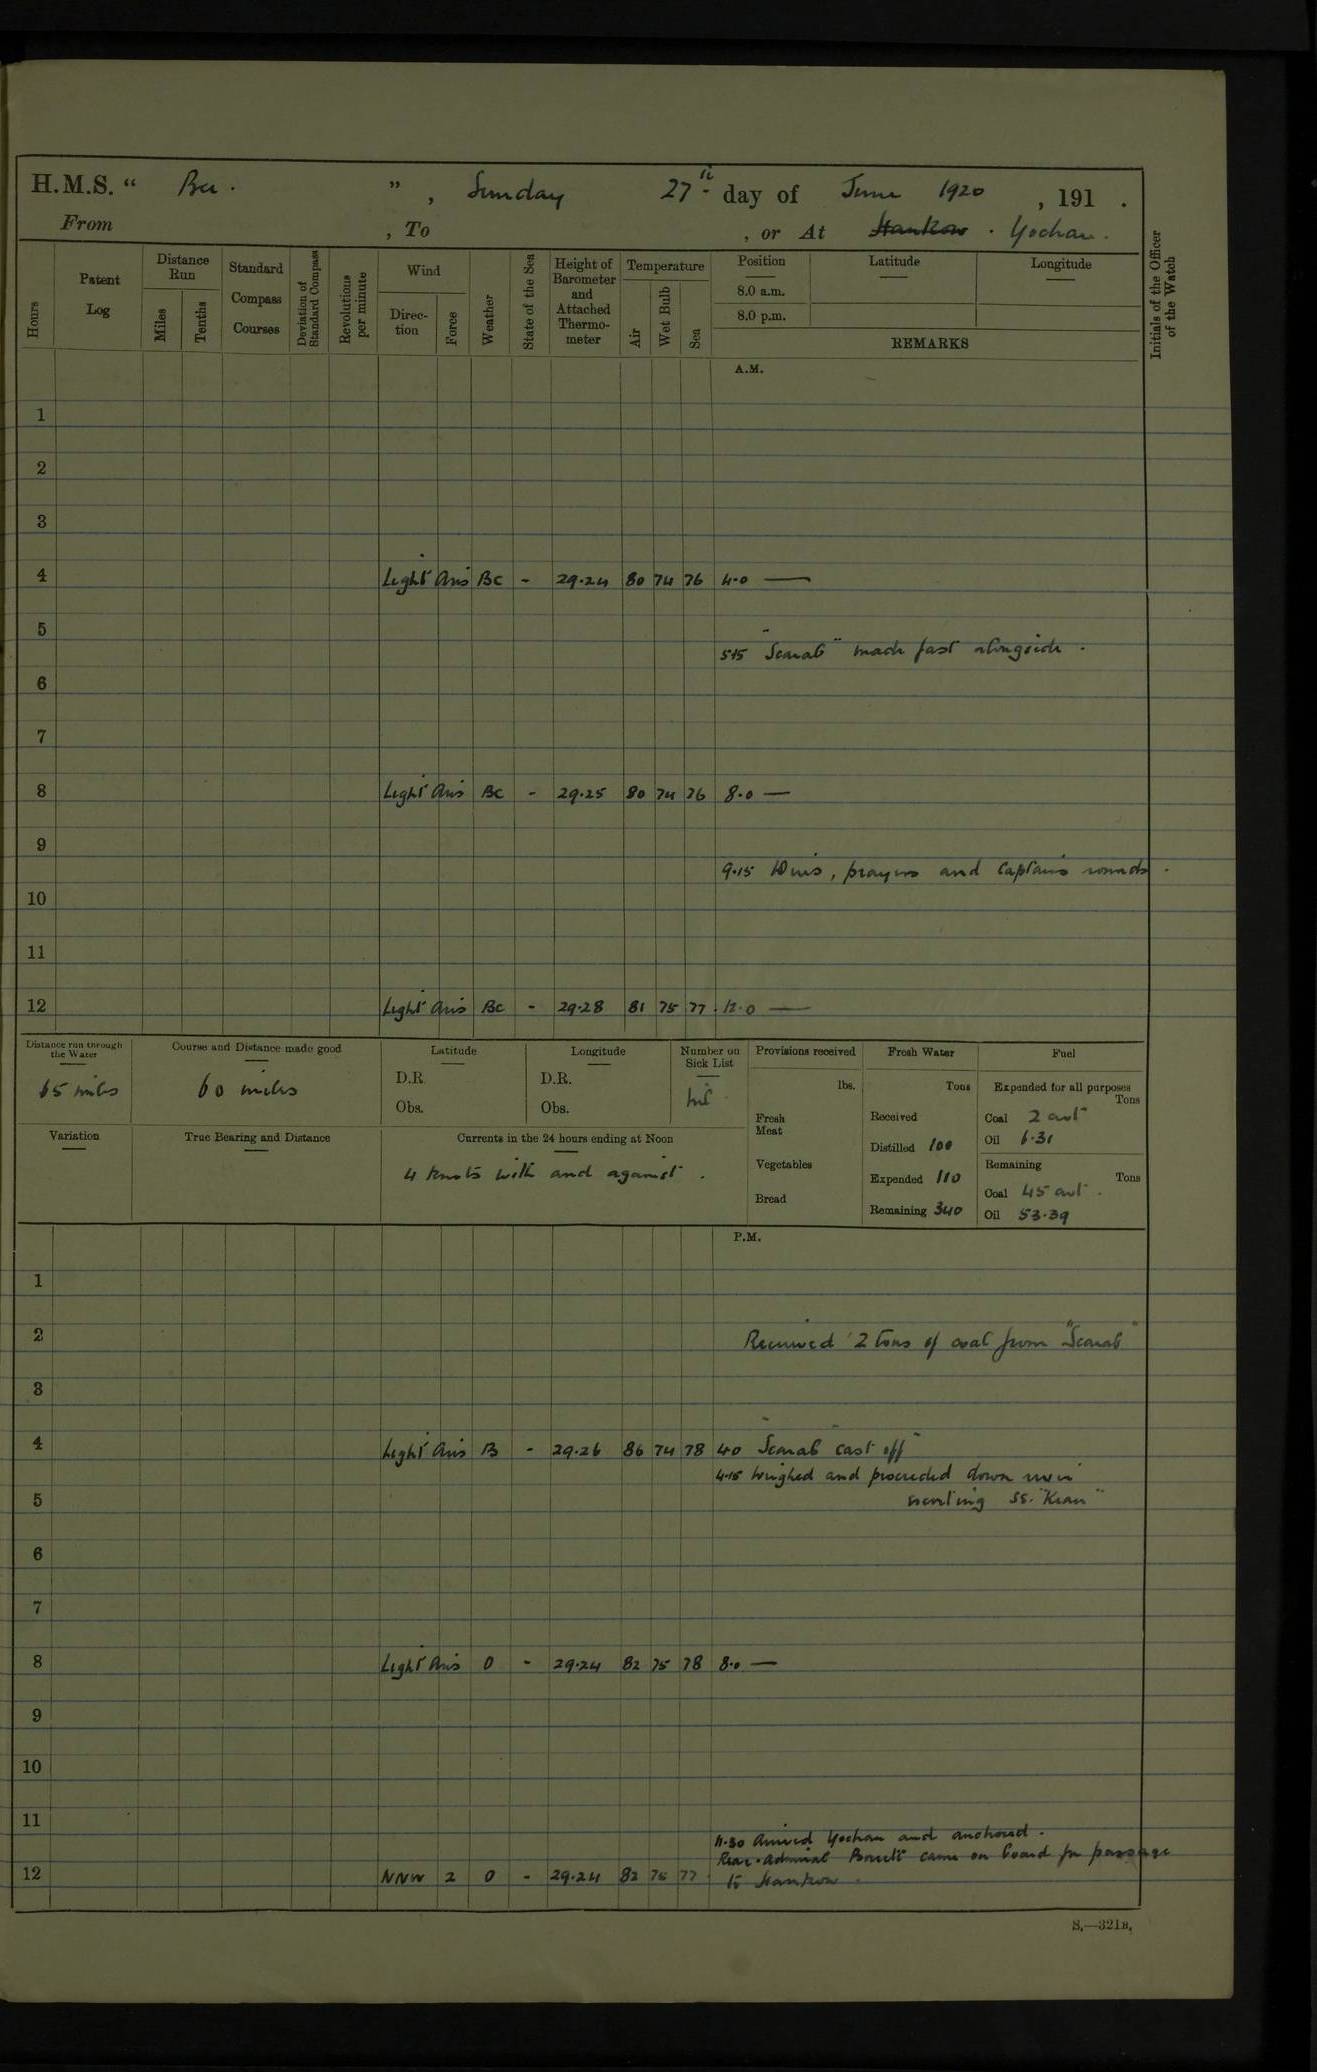 H.M.S. “ Bee. ” , Sunday 27th day of June 1920 , 191 .
From , To , or At Hankow . Yochau.
Hours
Patent Log
Distance Run
Miles
Tenths
Standard Compass Courses
Deviation of Standard Compass
Revolutions per minute
Wind
Direction
Force
Weather
State of the Sea
Height of Barometer and Attached Thermometer
Temperature
Air
Wet Bulb
Sea
Position
8.0 a.m.
8.0 p.m.
Latitude
Longitude
REMARKS
Initials of the Officer of the Watch
A.M.
1
2
3
4 Light Airs BC - 29.24 80 74 76 4.0 —
5
5.15 "Scarab" made fast alongside.
6
7
8 Light Airs BC - 29.25 80 74 76 8.0 —
9
9.15 Divis, prayers and Captains rounds.
10
11
12 Light Airs BC - 29.28 81 75 77 12.0 —
Distance run through the Water
65 miles
Course and Distance made good
60 miles
Latitude
D.R.
Obs.
Longitude
D.R.
Obs.
Number on Sick List
nil
Variation
True Bearing and Distance
Currents in the 24 hours ending at Noon
4 knots with and against.
Provisions received
lbs.
Fresh Meat
Vegetables
Bread
Fresh Water
Tons
Received
Distilled 100
Expended 110
Remaining 340
Fuel
Expended for all purposes
Tons
Coal 2 cwt
Oil 6.31
Remaining
Tons
Coal 45 cwt.
Oil 53.39
P.M.
1
2 Received 2 tons of coal from "Scarab"
3
4 Light Airs B - 29.26 86 74 78 4.0 "Scarab" cast off
4.15 Weighed and proceeded down river
5 escorting SS. "Kian"
6
7
8 Light Airs O - 29.24 82 75 78 8.0 —
9
10
11
11.30 Arrived Yochau and anchored.
Rear-Admiral came on board for passage
12 NNW 2 O - 29.24 82 75 77 to Hankow.
S.—321B.